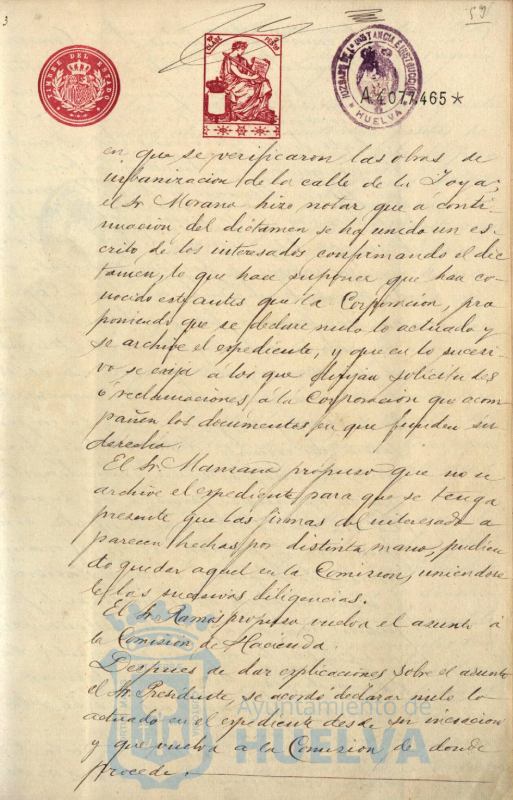 3
59
TIMBRE DEL ESTADO
JUZGADO DE 1ª INSTANCIA E INSTRUCCION
HUELVA
A4077465*
en que se verificaron las obras de
urbanizacion de la calle de la Joya;
el Sr. Morano hizo notar que a conti-
nuacion del dictamen se ha unido un es-
crito de los interesados confirmando el dic
tamen, lo que hace suponer que han co-
nocido este antes que la Corporacion, pro
poniendo que se declare nulo lo actuado y
se archive el expediente, y que en lo sucesi-
vo se exija a los que dirijan solicitudes
ó reclamaciones a la Corporacion que acom
pañen los documentos en que funden su
derecho.
El Sr. Manzano propuso que no se
archive el expediente para que se tenga
presente que las firmas del interesado a
parecen hechas por distinta mano, pudien
do quedar aquel en la Comision, uniendose
le las sucesivas diligencias.
El Sr. Ramos propuso vuelva el asunto á
la Comision de Hacienda.
Despues de dar explicaciones sobre el asunto
el Sr. Presidente, se acordó declarar nulo lo
actuado en el expediente desde su iniciacion
y que vuelva a la Comision de donde
procede.
Ayuntamiento de
HUELVA